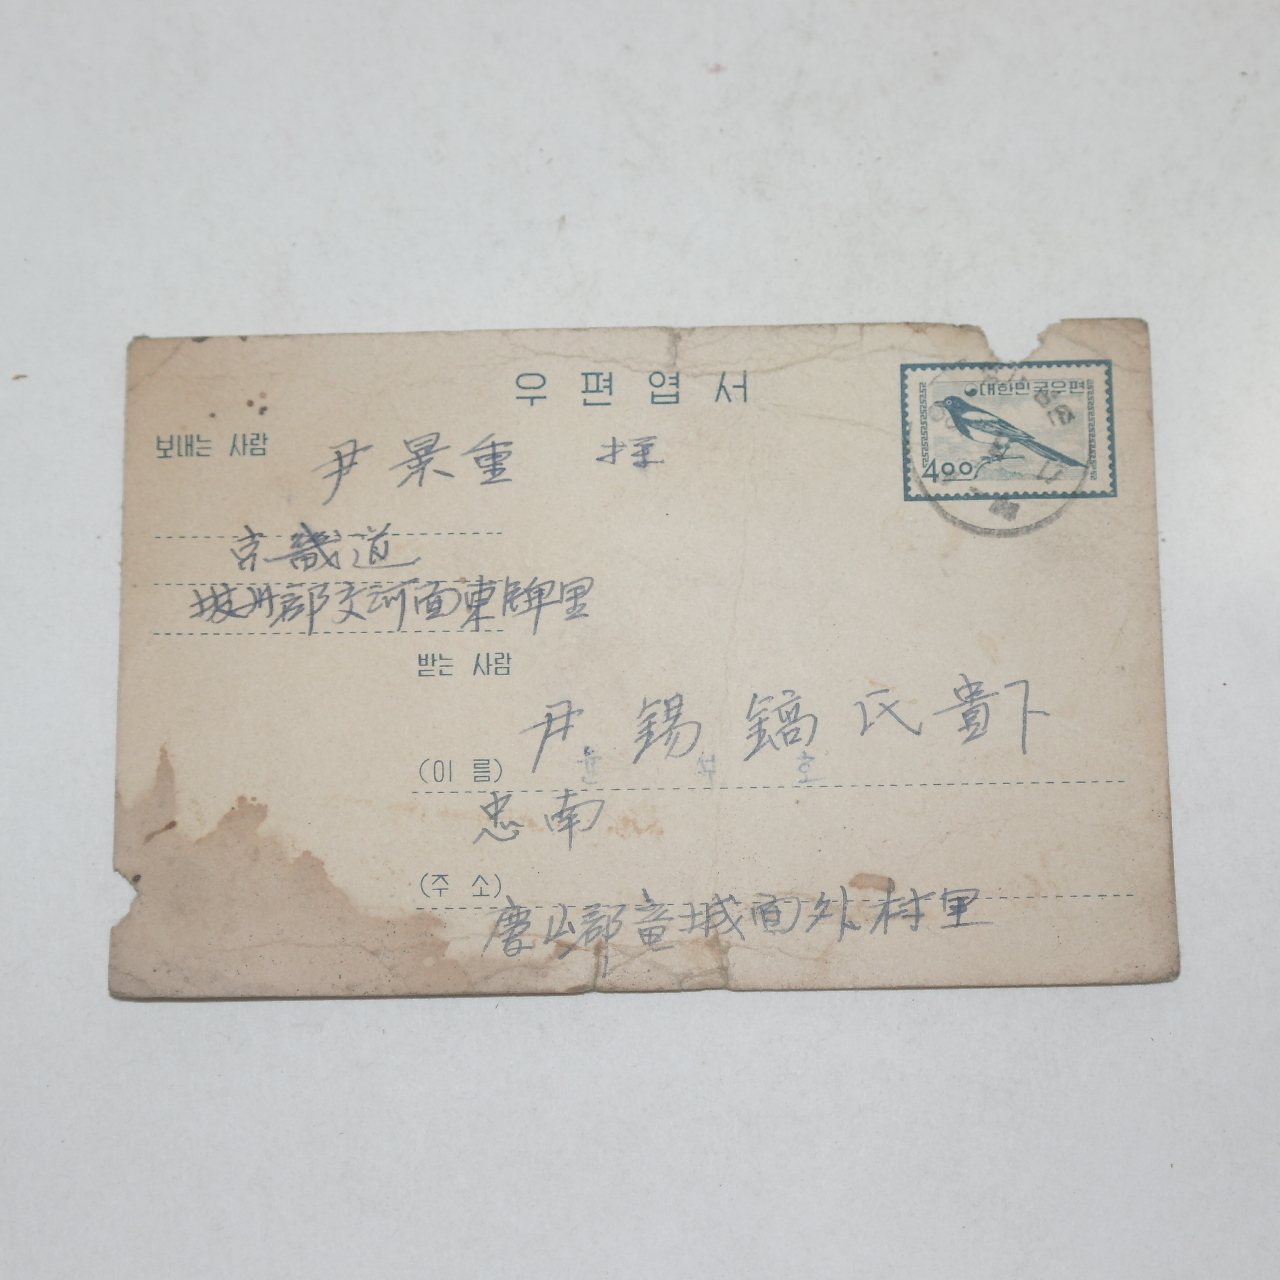 우편엽서
대한민국우편
400
보내는 사람
尹景重 拜
京畿道
坡州郡交河面東牌里
받는 사람
(이 름) 尹錫鎬氏貴下
윤 석 호
忠南
(주 소)
論山郡 城面外村里